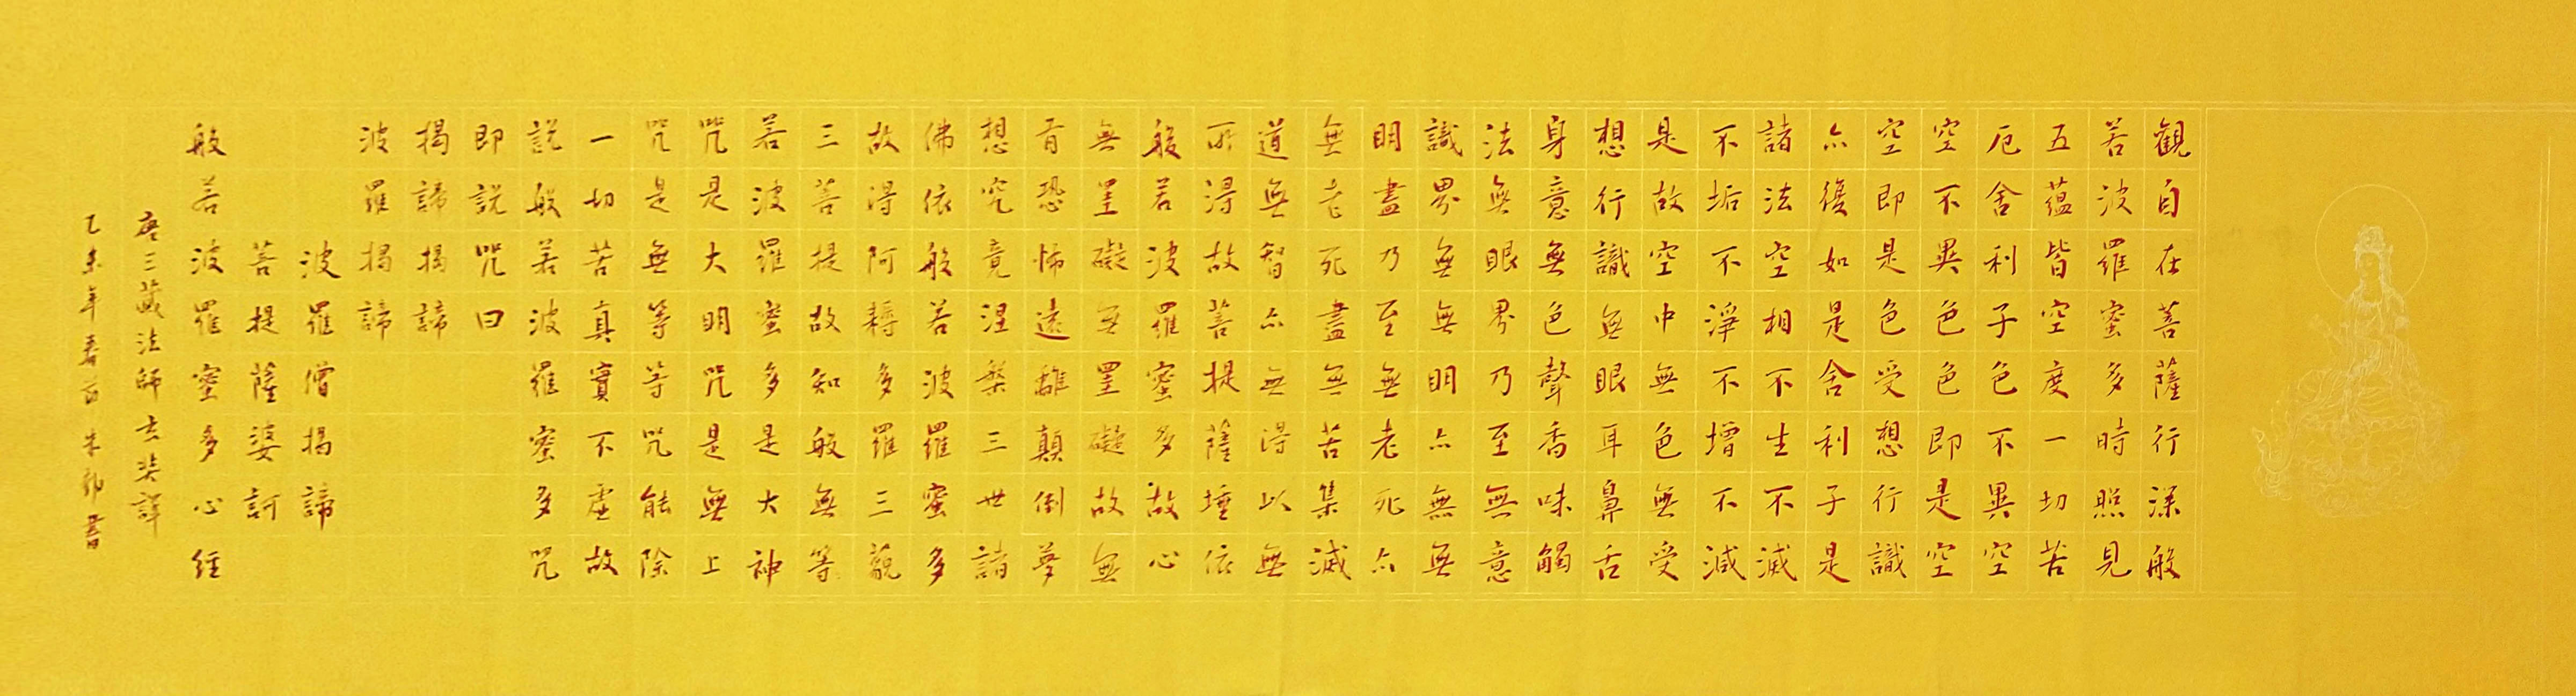 觀自在菩薩行深般
若波羅蜜多時照見
五蘊皆空度一切苦
厄舍利子色不異空
空不異色色即是空
空即是色受想行識
亦復如是舍利子是
諸法空相不生不滅
不垢不淨不增不減
是故空中無色無受
想行識無眼耳鼻舌
身意無色聲香味觸
法無眼界乃至無意
識界無無明亦無無
明盡乃至無老死亦
無老死盡無苦集滅
道無智亦無得以無
所得故菩提薩埵依
般若波羅蜜多故心
無罣礙無罣礙故無
有恐怖遠離顛倒夢
想究竟涅槃三世諸
佛依般若波羅蜜多
故得阿耨多羅三藐
三菩提故知般無等
若波羅蜜多是大神
咒是大明咒是無上
咒是無等等咒能除
一切苦真實不虛故
說般若波羅蜜多咒
即說咒曰
揭諦揭諦
波羅揭諦
波羅僧揭諦
菩提薩婆訶
般若波羅蜜多心經
唐三藏法師玄奘譯
乙未年春 朱書